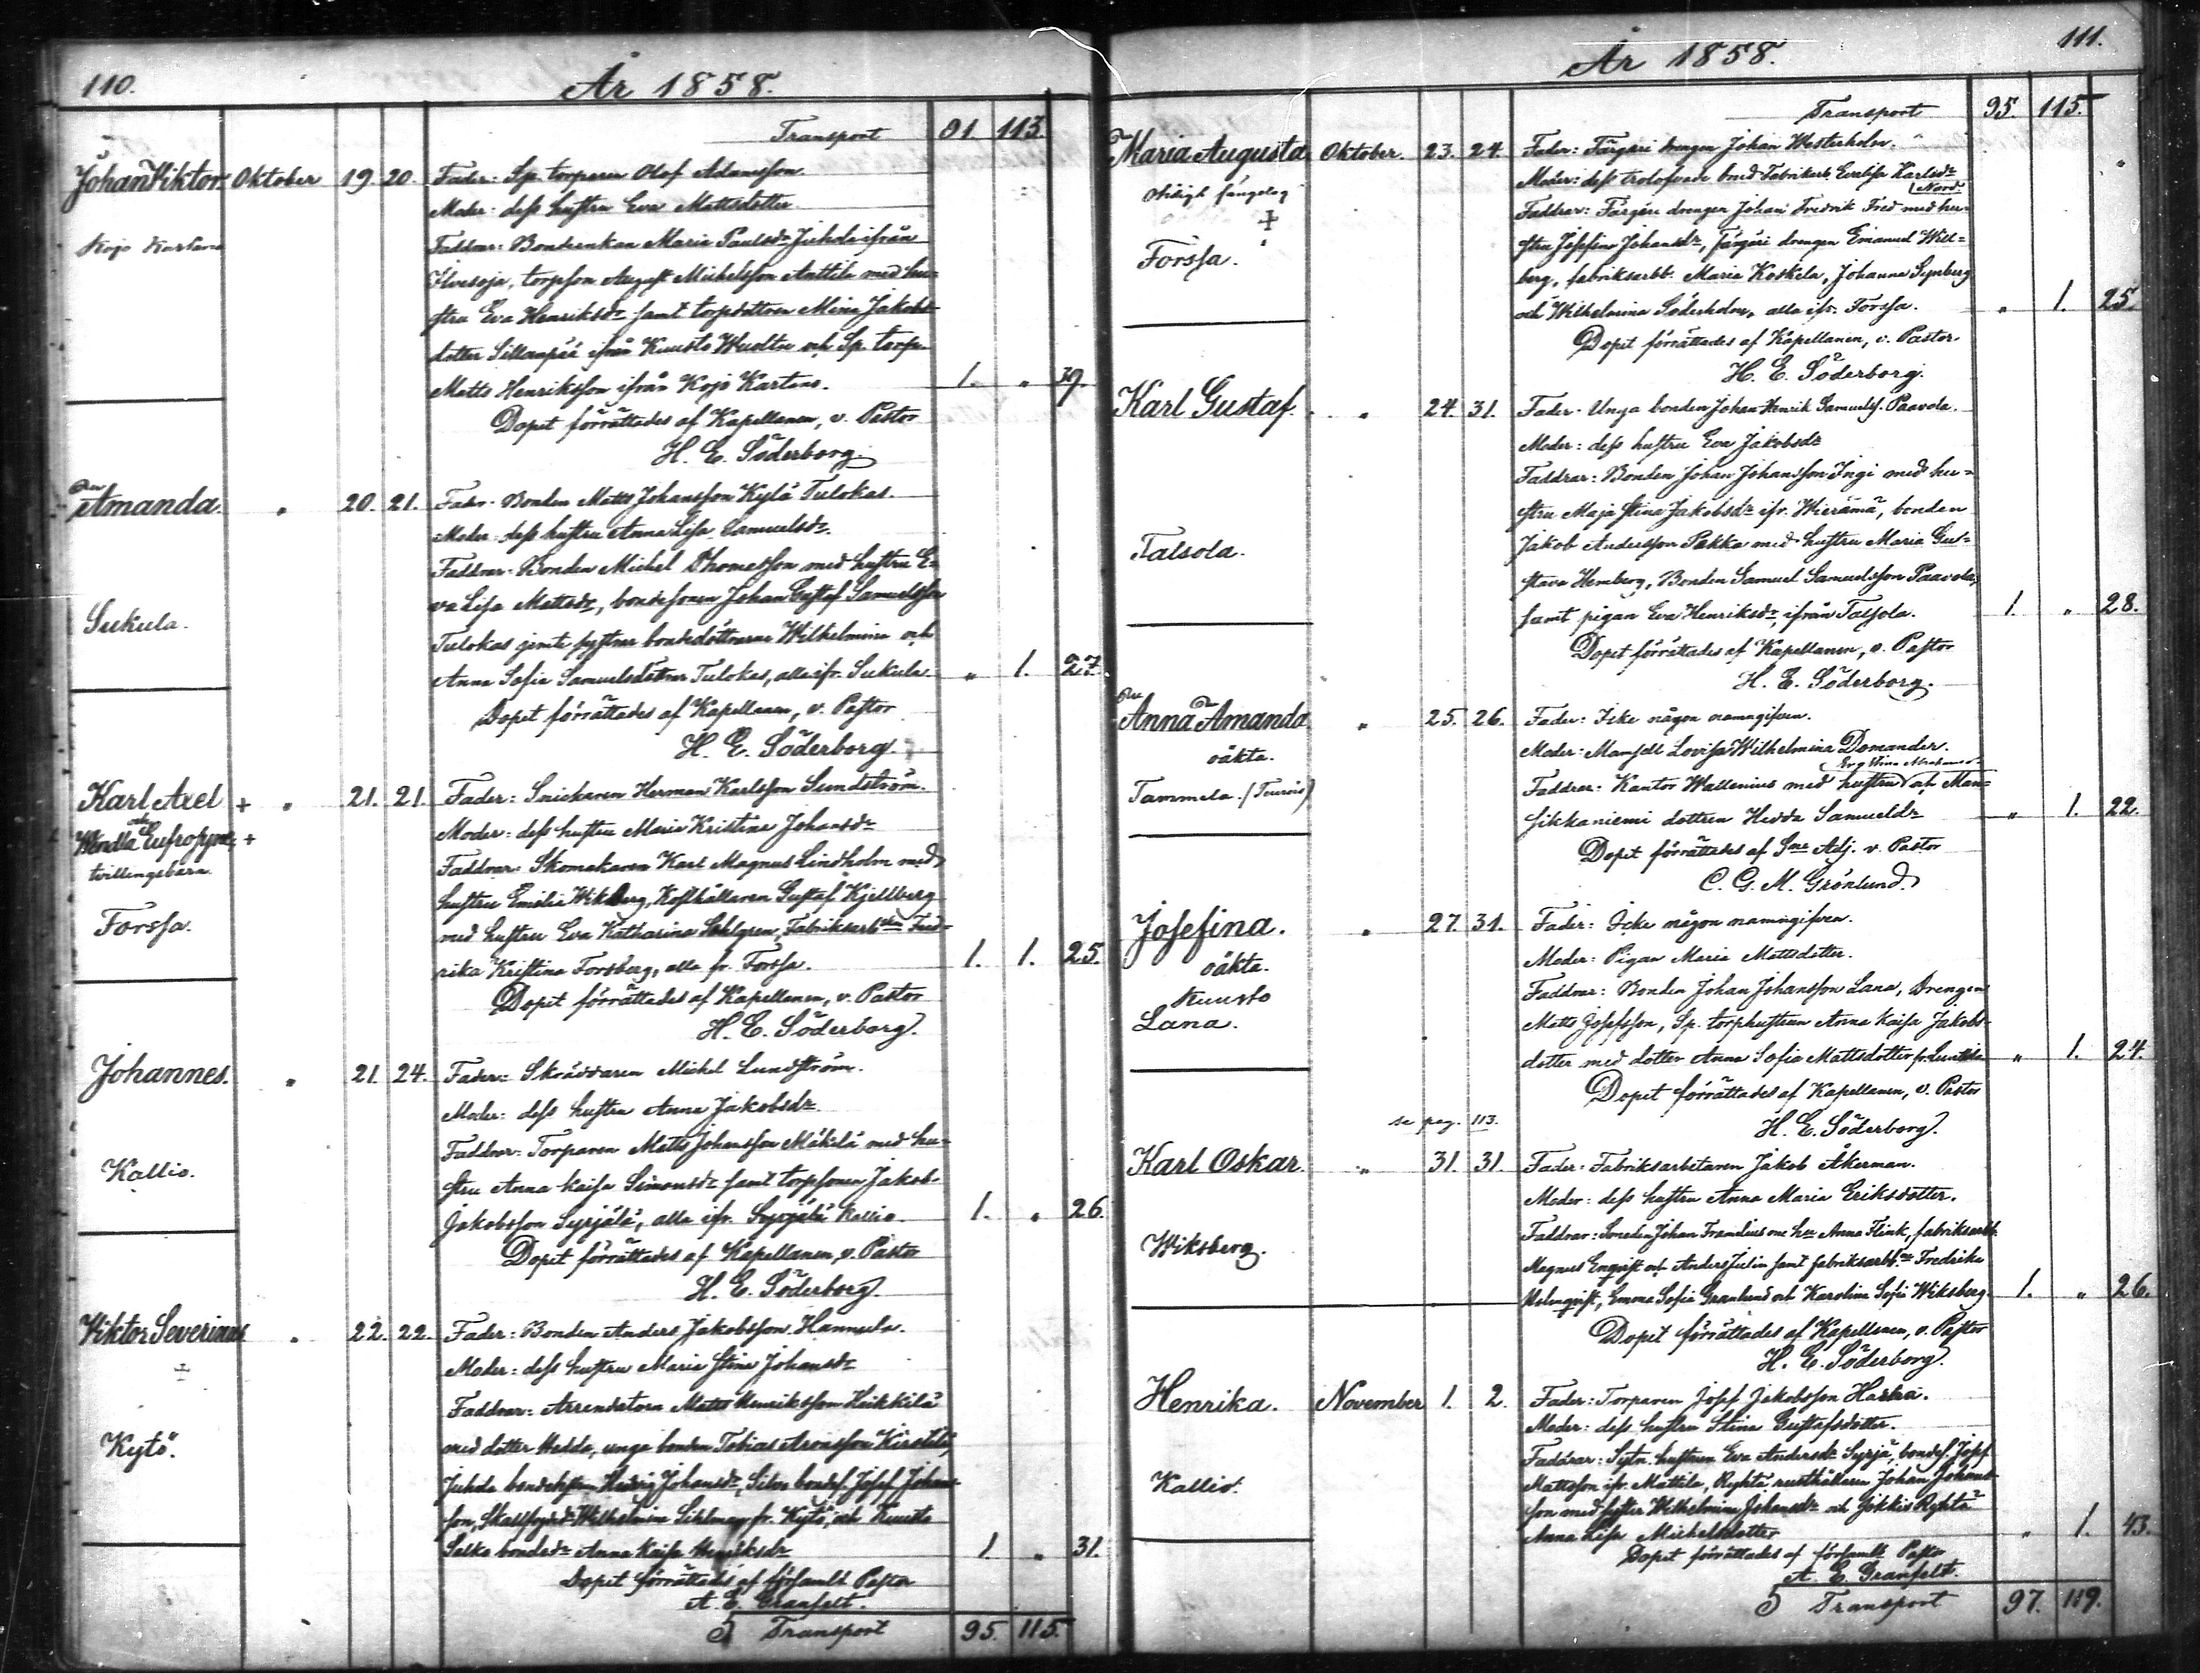 110.
År 1858.
Transport 91. 113.
Johan Viktor. Oktober 19. 20. Fader: Sp. torparen Olof Adamsson
Moder: dess hustru Eva Mattsdotter
Kojo Kartano
Faddrar: Bondeenkan Maria Paulsdr Juhola ifrån
torpson August Michelsson Anttila med hu-
stru Eva Henriksdr samt torpdottren Mina Jakobs-
dotter Sillanpää ifrån Kuusto och Sp. torp.
Matts Henriksson ifrån Kojo Kartano. 1. „ 39.
Dopet förrättades af Kapellanen, v. Pastor
H. E. Söderborg.
Amanda. „ 20. 21. Fader: Bonden Matts Johansson Kylä Tulokas.
Moder: dess hustru Anna Lisa Samuelsdr.
Faddrar: Bonden Michel Thomasson med hustru E-
va Lisa Mattsdr, bondesonen Johan Gustaf Samuelsson
Sukula.
Tulokas jemte systrar bondedöttrarne Wilhelmina och
Anna Sofia Samuelsdöttrar Tulokas, alla ifr. Sukula. „ 1. 27.
Dopet förrättades af Kapellanen, v. Pastor
H. E. Söderborg.
Karl Axel + „ 21. 21. Fader: Snickaren Herman Karlsson Sundström.
och
Wendla Eufrosyne, + Moder: dess hustru Maria Kristina Johansdr
tvillingsbarn
Faddrar: Skomakaren Karl Magnus Lindholm med
hustru Emilia Wikberg, Kosthållaren Gustaf Kjellberg
Forssa.
med hustru Eva Katharina Sahlgren, Fabriksarbterskan Fred-
rika Kristina Forsberg, alla fr. Forssa. 1. 1. 25.
Dopet förrättades af Kapellanen, v. Pastor
H. E. Söderborg.
Johannes. „ 21. 24. Fader: Skräddaren Michel Lundström.
Moder: dess hustru Anna Jakobsdr
Faddrar: Torparen Matts Johansson Mäkilä med hu-
Kallio.
stru Anna Kaisa Simonsdr samt torpsonen Jakob
Jakobsson Syrjälä, alla ifr. Syrjälä Kallio. 1. „ 26.
Dopet förrättades af Kapellanen, v. Pastor
H. E. Söderborg
Viktor Severinus „ 22. 22. Fader: Bonden Anders Jakobsson Hannula.
+
Moder: dess hustru Maria Stina Johansdr
Faddrar: Arrendatorn Matts Henriksson Heikkilä
Kytö.
med dotter Hedda, unga bonden Tobias Aronsson Kirstilä,
Juhola bondehustrun Hedvig Johansdr, bondes. Josef Johans-
son, Wilhelmina fr. Kytö, och Kuusto
Salka bondedr Anna Kaisa Henriksdr 1. „ 31.
Dopet förrättades af församl. Pastor
A. E. Granfelt.
Transport 95. 115.
111.
År 1858.
Transport 95. 115.
Maria Augusta Oktober. 23. 24. Fader: Färgeri drengen Johan Westerholm.
Moder: dess trolofvade brud Fabriksarb. Evalisa Karlsdr
Nord
+
Faddrar: Färgeri drengen Johan Fredrik Fred med hu-
Forssa.
stru Josefina Johansdr, färgeri drengen Emanuel Will-
berg, fabriksarbb. Maria Koskela, Johanna
och Wilhelmina Söderholm, alla ifr. Forssa. „ 1. 25.
Dopet förrättades af Kapellanen, v. Pastor
H. E. Söderborg.
Karl Gustaf. „ 24. 31. Fader: Unga bonden Johan Henrik Samuelss. Paavola.
Moder: dess hustru Eva Jakobsdr
Faddrar: Bonden Johan Johansson Ingi med hu-
stru Maja Stina Jakobsdr ifr. Wieremä, bonden
Talsola.
Jakob Andersson Pekka med hustru Maria Gus-
stava Hemberg, Bonden Samuel Samuelsson Paavola,
samt pigan Eva Henriksdr, ifrån Talsola. 1. „ 28.
Dopet förrättades af Kapellanen, v. Pastor
H. E. Söderborg.
Anna Amanda „ 25. 26. Fader: Icke någon namngifven.
oäkta.
Moder: Mamsell Lovisa Wilhelmina Domander.
Tammela.
Faddrar: Kantor Wallenius med hustru och Man-
sikkaniemi dottren Hedda Samuelsdr „ 1. 22.
Dopet förrättades af Sne Adj. v. Pastor
C. G. M. Grönlund.
Josefina. „ 27. 31. Fader: Icke någon namngifven.
oäkta.
Moder: Pigan Maria Mattsdotter.
Kuusto
Faddrar: Bonden Johan Johansson Lana, Drengen
Lana.
Matts Josefsson, Sp. torphustrun Anna Kaisa Jakobs-
dotter med dotter Anna Sofia Mattsdotter „ 1. 24.
Dopet förrättades af Kapellanen, v. Pastor
se pag. 113.
H. E. Söderborg.
Karl Oskar. „ 31. 31. Fader: Fabriksarbetaren Jakob Åkerman.
Moder: dess hustru Anna Maria Eriksdotter.
Faddrar: Smeden Johan Anna Flink, fabriksarbb.
Wiksberg.
Magnus Enqvist och Anders Julin samt fabriksarbb. Fredrika
Malmqvist, Emma Sofia Granlund och Karolina Sofia Wiksberg. 1. „ 26.
Dopet förrättades af Kapellanen, v. Pastor
H. E. Söderborg.
Henrika. November 1. 2. Fader: Torparen Josef Jakobsson Harhia.
Moder: dess hustru Stina Gustafsdotter.
Faddrar: Sytn. hustrun Eva Andersdr Syrjä, bondes. Josef
Kallio.
Mattsson ifr. Mattila, Ryhtä rusthållaren Johan Johans-
son med syster Wilhelmina Johansdr och Jokkis Ryhtä
Anna Lisa Michelsdotter „ 1. 43.
Dopet förrättades af församl. Pastor
A. E. Granfelt.
Transport 97. 119.